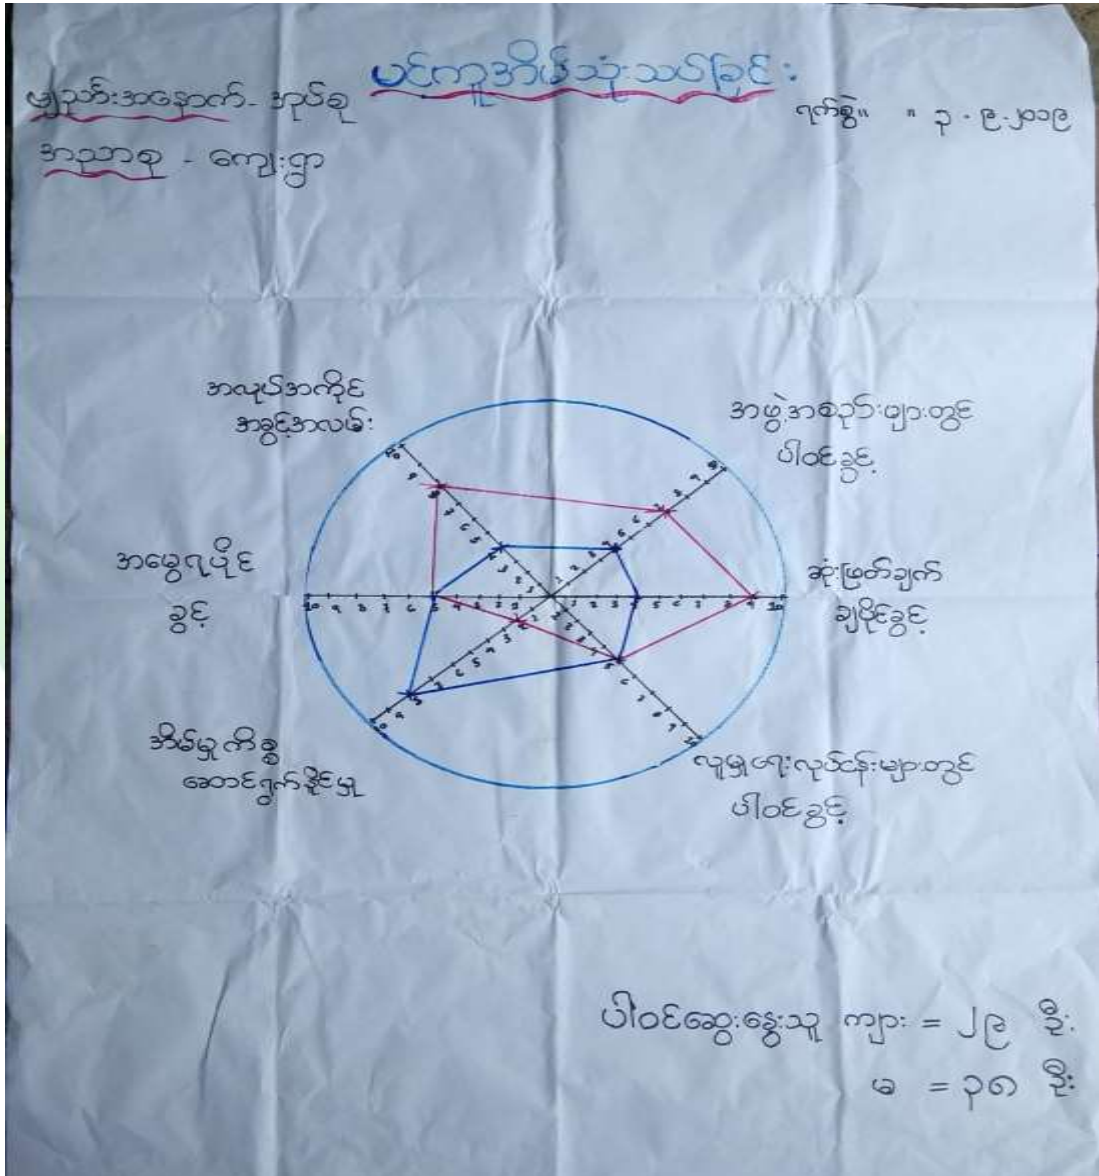 ပင်ကူအိမ်သုံးသပ်ခြင်း
မျှည်းအနောက် - အုပ်စု
ရက်စွဲ။ ။ ၃.၉.၂၀၁၉
အညာစု - ကျေးရွာ
အလုပ်အကိုင်
အခွင့်အလမ်း
အဖွဲ့အစည်းများတွင်
ပါဝင်ခွင့်
အမွေရပိုင်
ခွင့်
ဆုံးဖြတ်ချက်
ချပိုင်ခွင့်
အိမ်မှုကိစ္စ
ဆောင်ရွက်နိုင်မှု
လူမှုရေးလုပ်ငန်းများတွင်
ပါဝင်ခွင့်
ပါဝင်ဆွေးနွေးသူ ကျား = ၂၉ ဦး
မ = ၃၈ ဦး